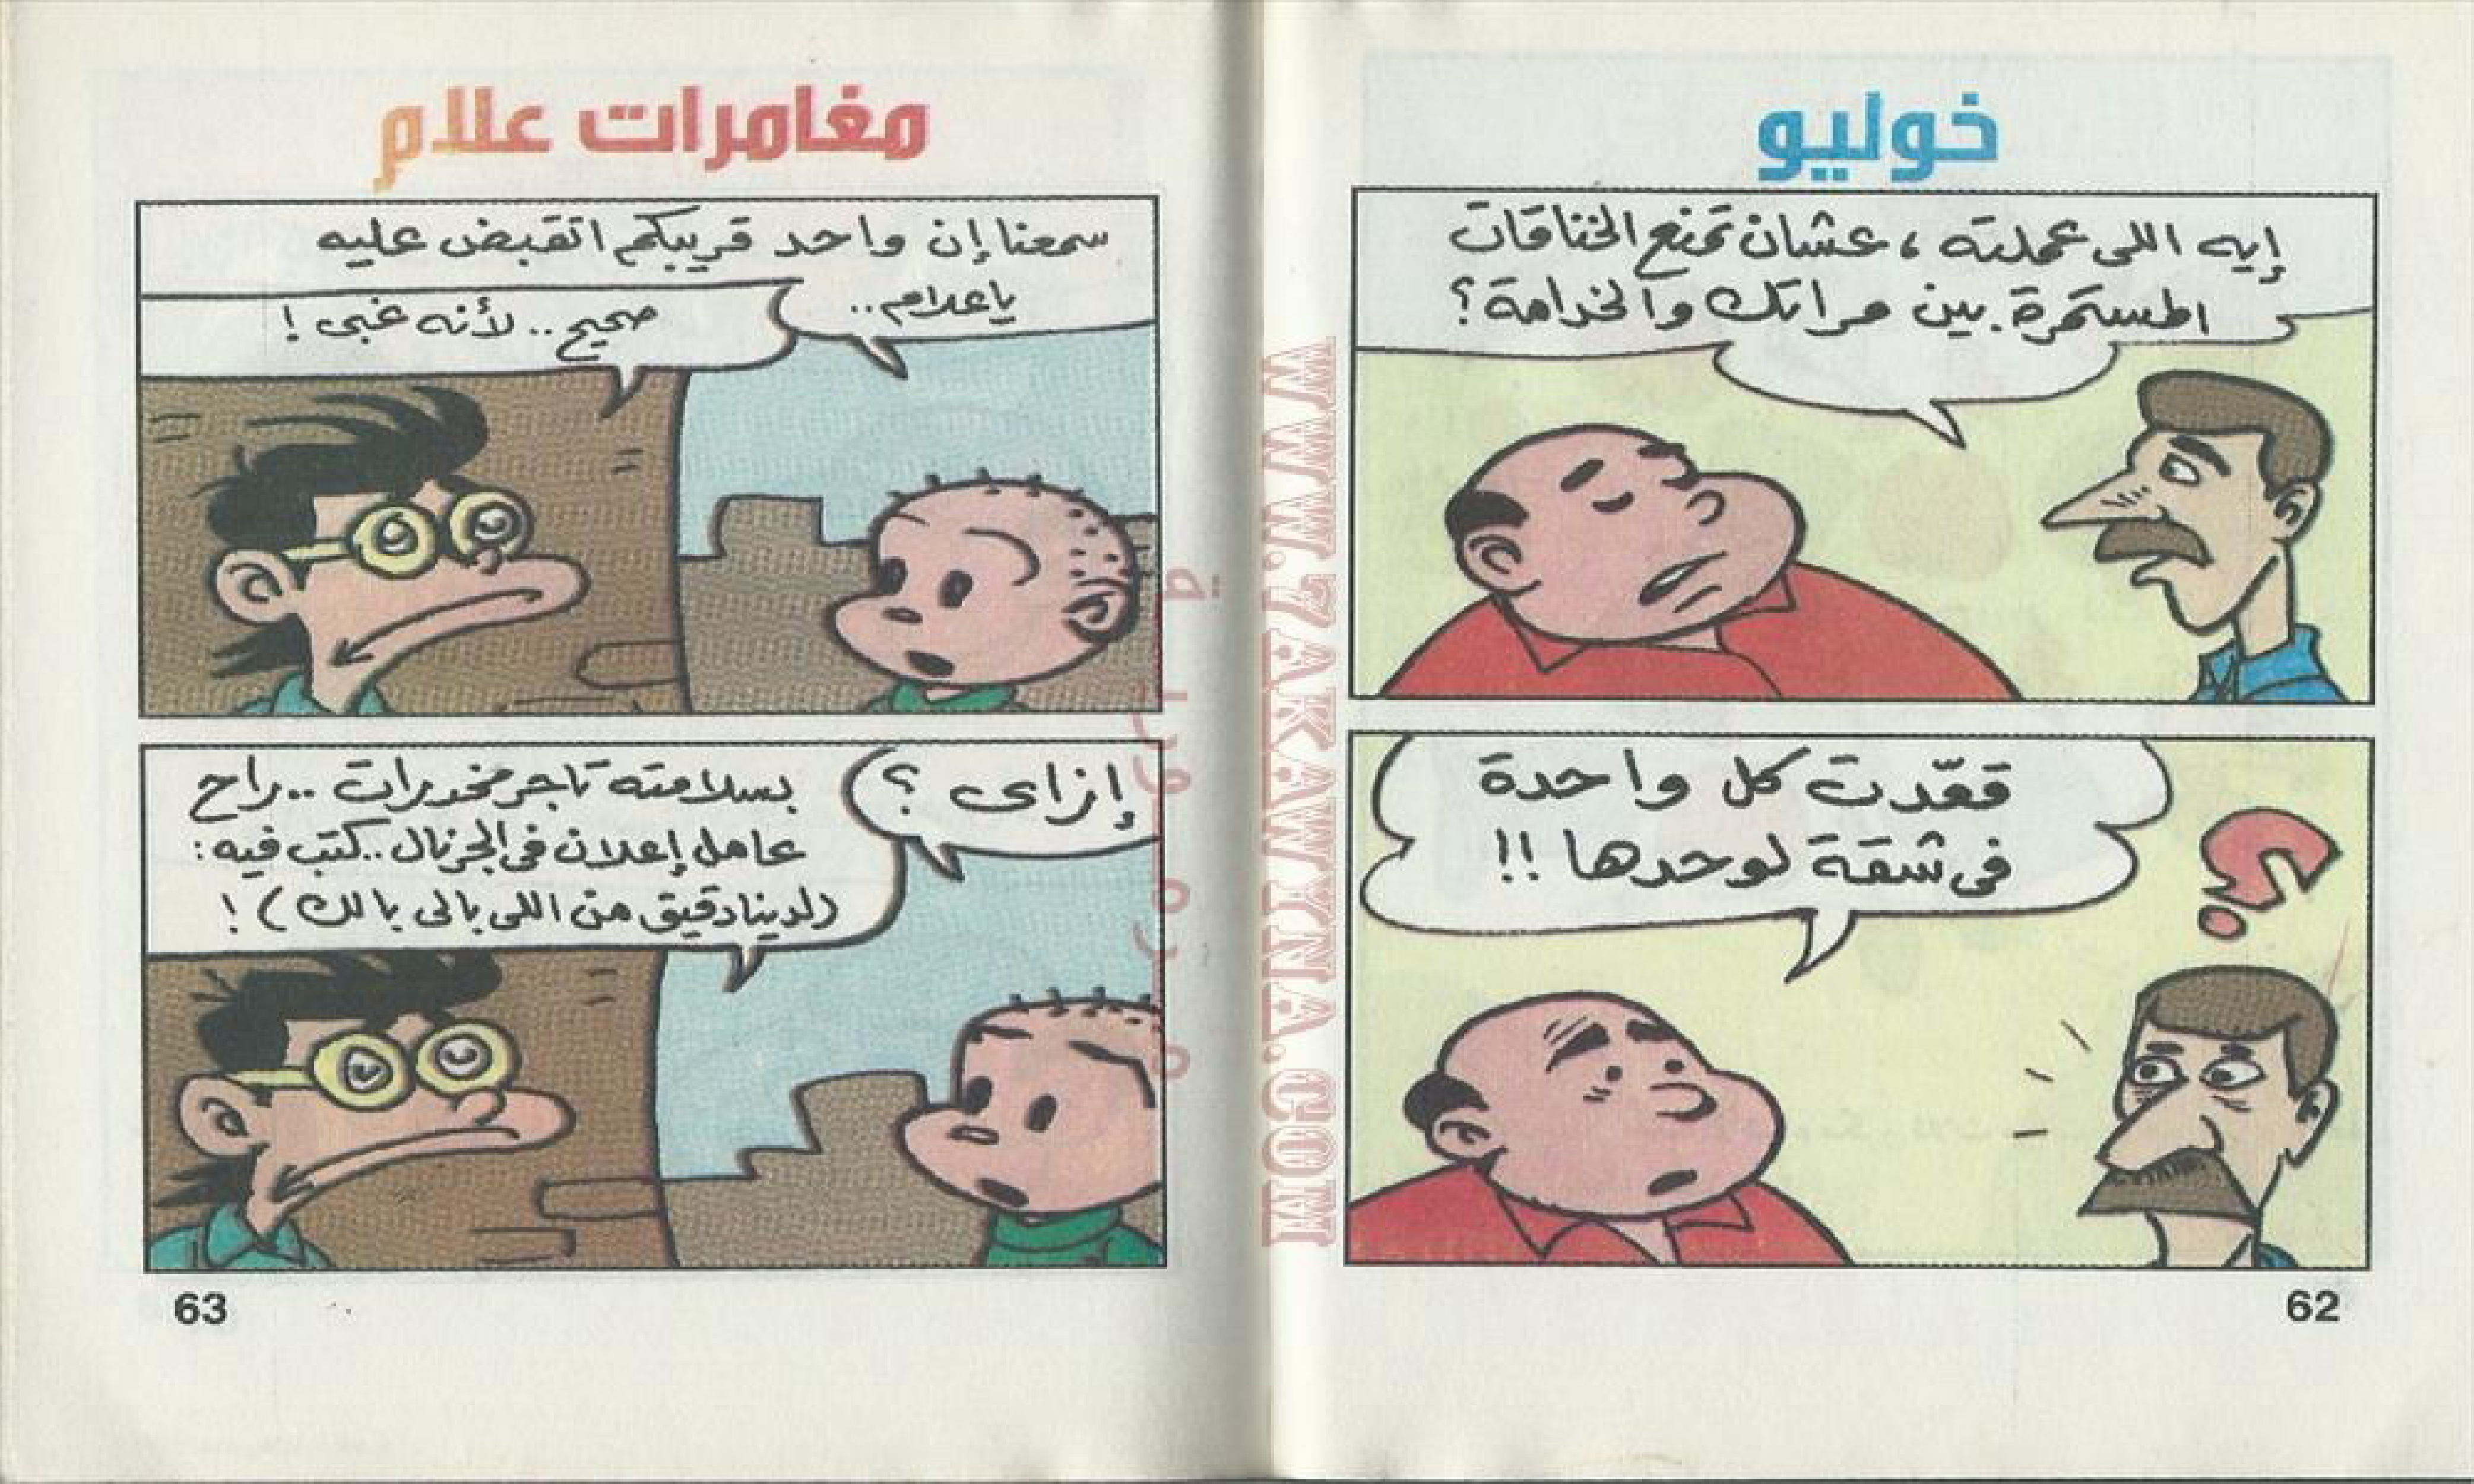 خوليو
إيه اللى عملته ، عشان تمنع الخناقات
المستمرة بين مراتك والخدامة ؟
قعّدت كل واحدة
فى شقة لوحدها !!
62
مغامرات علام
سمعنا إن واحد قريبكم اتقبض عليه
ياعلام ..
صحيح .. لأنه غبى !
إزاى ؟
بسلامته تاجر مخدرات .. راح
عامل إعلان فى الجرنال .. كتب فيه :
(لدينا دقيق من اللى بالى بالك) !
63
WWW.ZAKAWKNA.COM